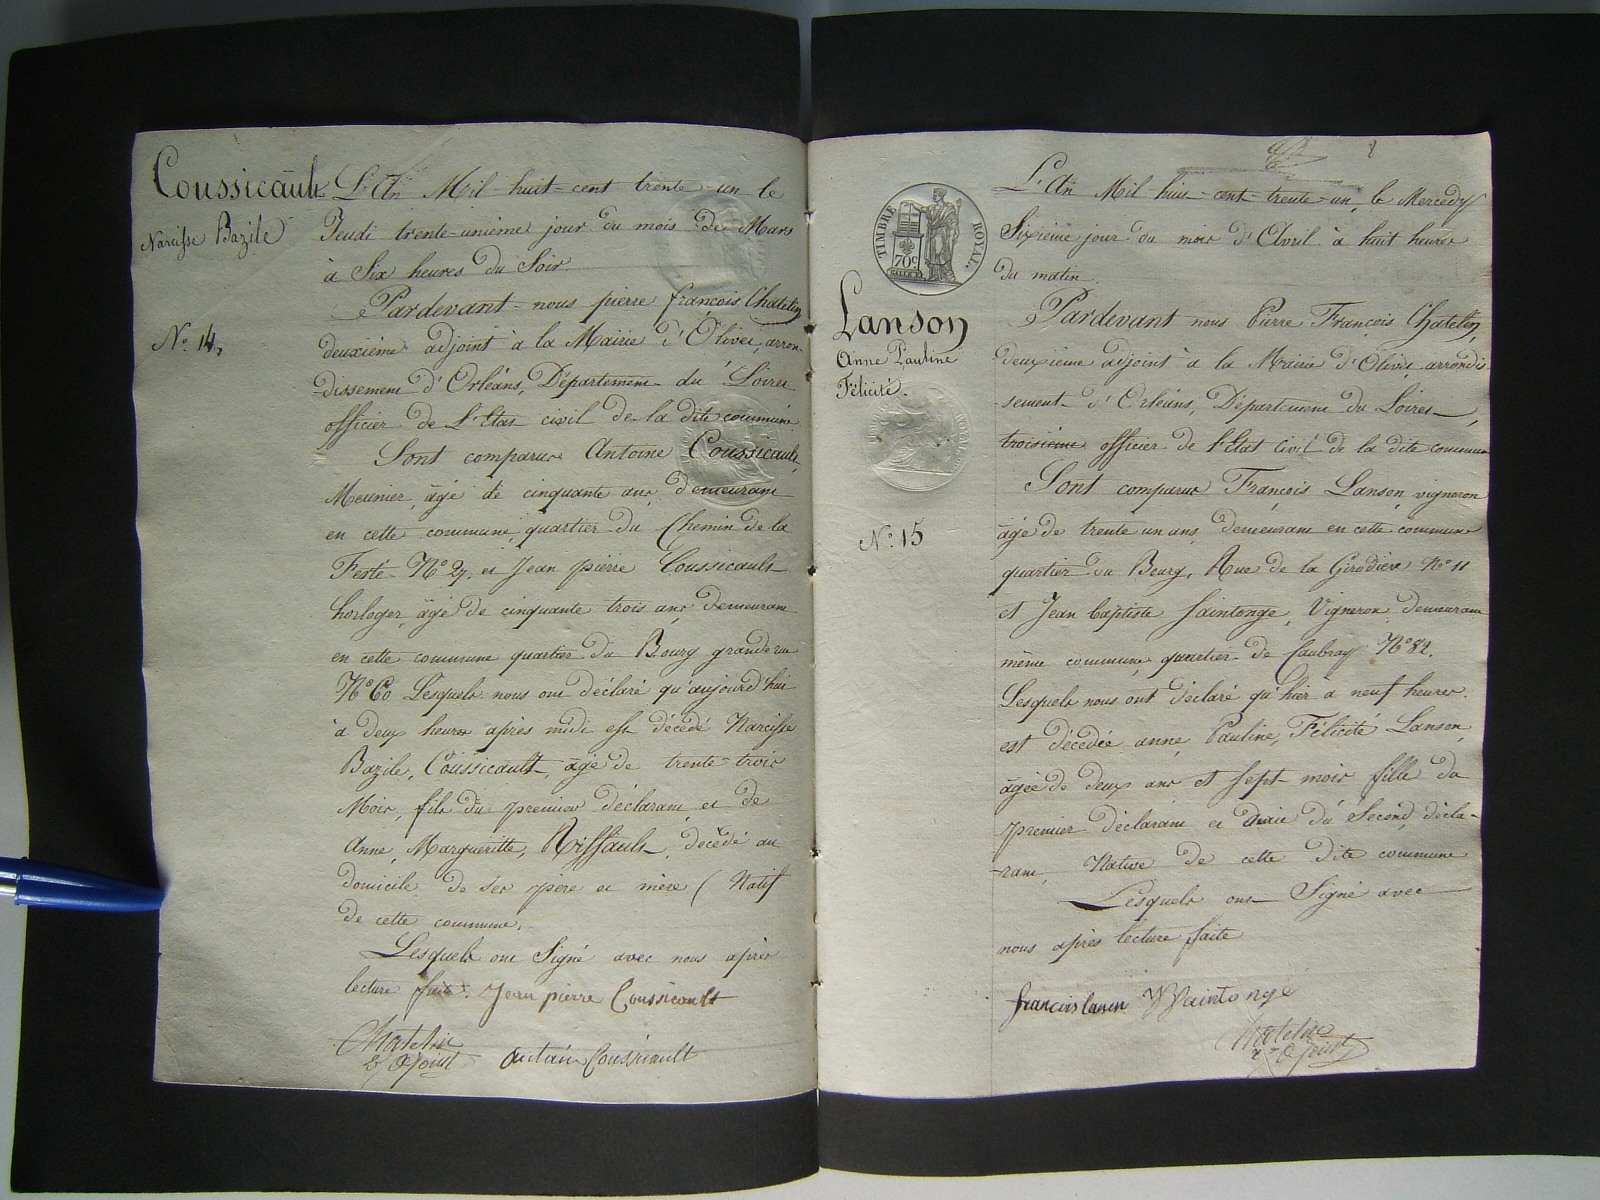 Coussicault
Narcisse Bazile
N.° 14,
L'An Mil-huit-cent trente-un le
Jeudi trente-unième jour du mois de Mars
à Six heures du Soir.
Pardevant-nous pierre françois Chatelin
deuxième adjoint à la Mairie d'Olivet, arron-
dissement d'Orléans, Département du Loiret
officier de L'Etat civil de la dite commune
Sont comparus Antoine Coussicault,
Meunier, âgé de cinquante ans, demeurant
en cette commune, quartier du Chemin de la
Ferté N° 27, et Jean pierre Coussicault
horloger, âgé de cinquante trois ans, demeurant
en cette commune quartier du Bourg grande rue
N° 60 Lesquels nous ont déclaré qu'aujourd'hui
à deux heures après midi est décédé Narcisse
Bazile, Coussicault, âgé de trente-trois
Mois, fils du premier déclarant et de
Anne, Margueritte, Roissault, décédé au
domicile de ses père et mère ( Natif
de cette commune.
Lesquels ont Signé avec nous après
lecture faite. Jean pierre Coussicault
Chatelin
2e Adjoint Antoin Coussicault
TIMBRE ROYAL.
70c
Lanson
Anne Pauline
Félicité.
N.° 15
L'An Mil-huit-cent-trente-un, le Mercedy
Sixième jour du mois d'Avril à huit heures
du matin.
Pardevant nous Pierre François Chatelin,
deuxième adjoint à la Mairie d'Olivet arrondis
sement d'Orléans, Département du Loiret,
troisième officier de l'Etat Civil de la dite commune
Sont comparus François Lanson, vigneron
âgé de trente un ans, demeurant en cette commune
quartier du Bourg, Rue de la Girodière N° 11
et Jean baptiste Saintonge, Vigneron demeurant
même commune, quartier de Caubray N° 82.
Lesquels nous ont déclaré qu'hier à neuf heures
est décédée anne, Pauline, Félicité Lanson,
âgée de deux ans et sept mois fille du
premier déclarant et du Second, décla-
rant, Native de cette dite commune
Lesquels ont Signé avec
nous après lecture faite
francois lanson Saintonge
Chatelin
2e Adjoint